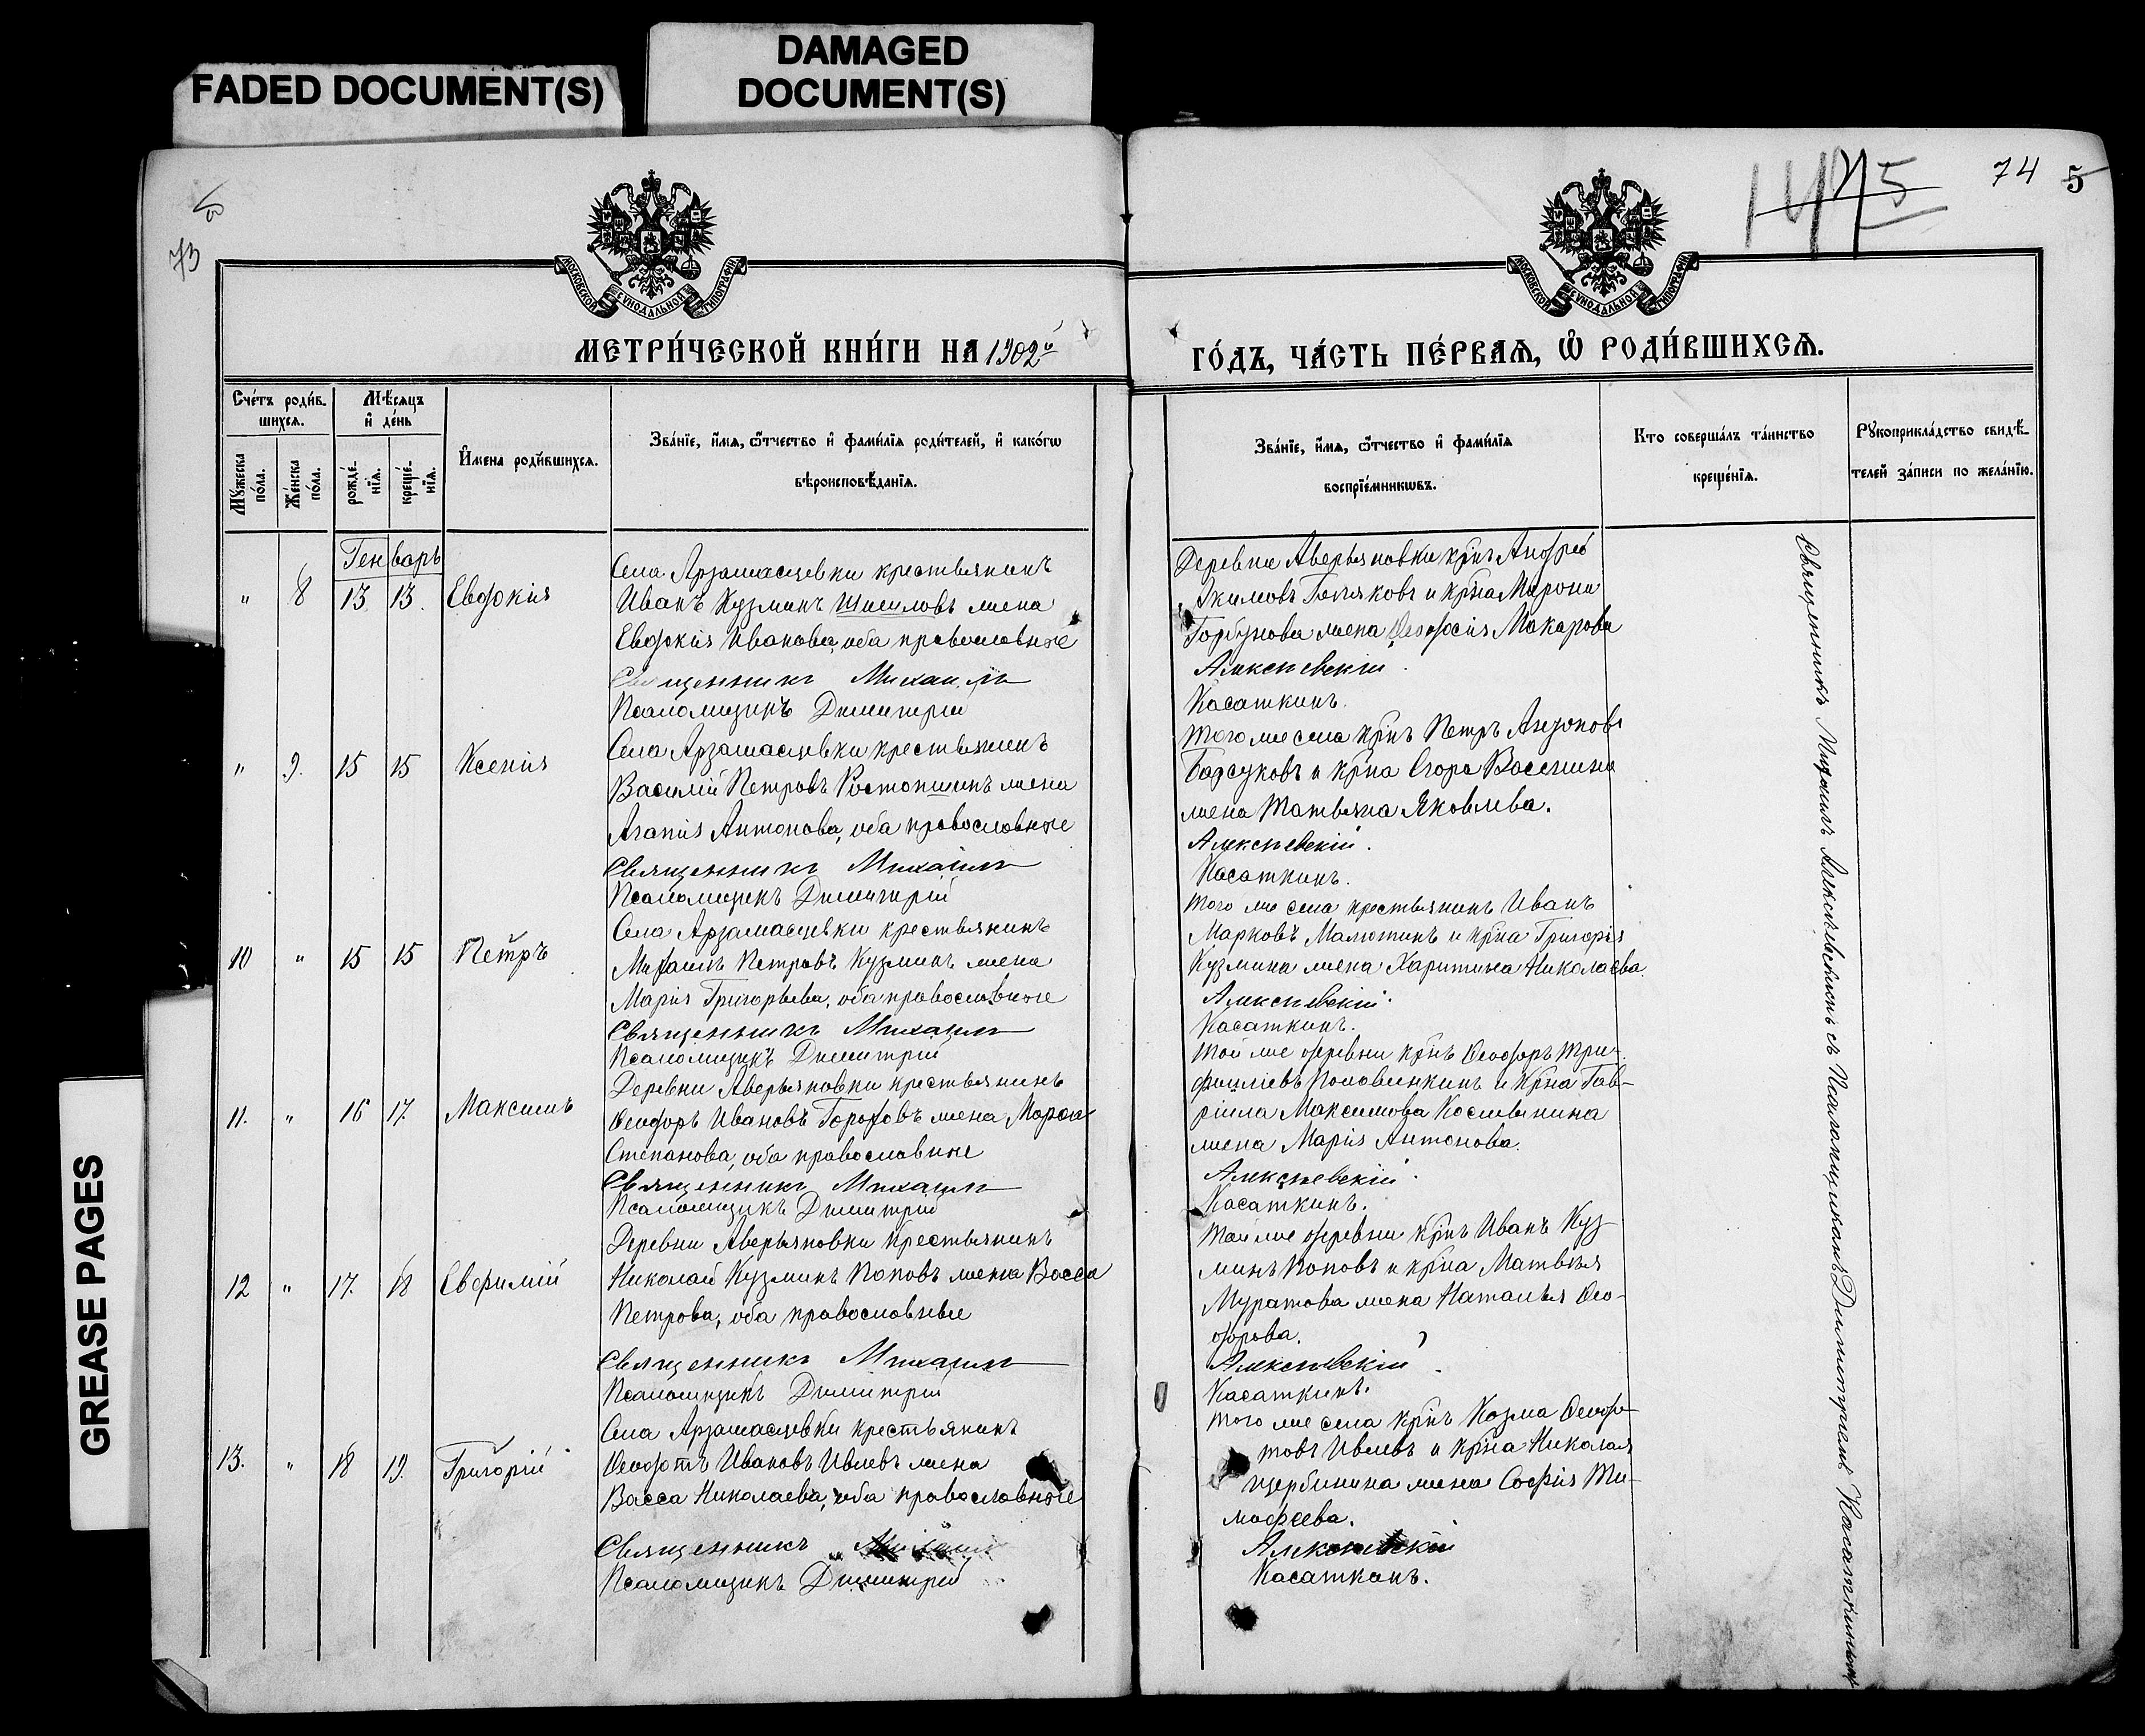 FADED DOCUMENT(S)
DAMAGED
DOCUMENT(S)
GREASE PAGES
73
74 5
МОСКОВСКОЙ СѴНОДАЛЬНОЙ ТИПОГРАФІИ
МОСКОВСКОЙ СѴНОДАЛЬНОЙ ТИПОГРАФІИ
МЕТРИ́ЧЕСКОЙ КНИ́ГИ НА 1902й
ГО́ДЪ, ЧА́СТЬ ПЕ́РВАѦ, Ѡ РОДИ́ВШИХСѦ.
Сче́тъ роди́в-
шихсѧ.
Мѣ́сѧцъ
и҆ де́нь
Мꙋ́жеска
по́ла.
Же́нска
по́ла.
рожде́-
нїѧ.
креще́-
нїѧ.
И҆мена роди́вшихсѧ.
Зва́нїе, и҆́мѧ, ѻ҆́тчество и҆ фами́лїѧ роди́телей, и҆ како́гѡ
вѣроисповѣ́данїѧ.
Зва́нїе, и҆́мѧ, ѻ҆́тчество и҆ фами́лїѧ
воспрїе́мникѡвъ.
Кто соверша́лъ та́инство
креще́нїѧ.
Рꙋкоприкла́дство свидѣ́-
телей за́писи по жела́нїю.
Генварь
" 8 13 13. Евдокія
Села Арзамасцевки крестьянинъ
Иванъ Кузминъ Шишловъ жена
Евдокія Иванова, оба православные
Священникъ Михаилъ
Псаломщикъ Димитрій
Деревни Аверьяновки крнъ Андрей
Акимовъ и крна Мирона
Горбунова жена Феодосія Макарова
Алексѣевскій.
Касаткинъ.
" 9. 15 15 Ксенія
Села Арзамасцевки крестьянинъ
Василій Петровъ Ростопшинъ жена
Агапія Антонова, оба православные
Священникъ Михаилъ
Псаломщикъ Димитрій
Того же села крнъ Петръ
Барсуковъ и крна Егора
жена Татьяна Яковлева.
Алексѣевскій.
Касаткинъ.
10 " 15 15 Петръ
Села Арзамасцевки крестьянинъ
Михаилъ Петровъ Кузминъ жена
Марія Григорьева, оба православные
Священникъ Михаилъ
Псаломщикъ Димитрій
Того же села крестьянинъ Иванъ
Марковъ Малютинъ и крна Григорія
Кузмина жена Харитина Николаева.
Алексѣевскій.
Касаткинъ.
11. " 16 17. Максимъ
Деревни Аверьяновки крестьянинъ
Феодоръ Ивановъ Гороховъ жена
Степанова, оба православные
Священникъ Михаилъ
Псаломщикъ Димитрій
Той же деревни крнъ Феодоръ Три-
филіевъ Половинкинъ и крна Гав-
ріила Максимова жена
жена Марія Антонова.
Алексѣевскій.
Касаткинъ.
12 " 17. 18 Евфимій
Деревни Аверьяновки крестьянинъ
Николай Кузминъ Поповъ жена Васса
Петрова, оба православные
Священникъ Михаилъ
Псаломщикъ Димитрій
Той же деревни крнъ Иванъ Куз-
минъ Поповъ и крна Матвѣя
Муратова жена Наталья Фео-
дорова.
Алексѣевскій.
Касаткинъ.
13. " 18 19. Григорій
Села Арзамасцевки крестьянинъ
Феодотъ Ивановъ Ивлевъ жена
Васса Николаева, оба православные
Священникъ Михаилъ
Псаломщикъ Димитрій
Того же села крнъ Козма Феодо-
товъ Ивлевъ и крна Николая
Щербинина жена Софія Ти-
мофеева.
Алексѣевскій
Касаткинъ.
Священникъ Михаилъ Алексѣевскій съ Псаломщикомъ Димитріемъ Касаткинымъ